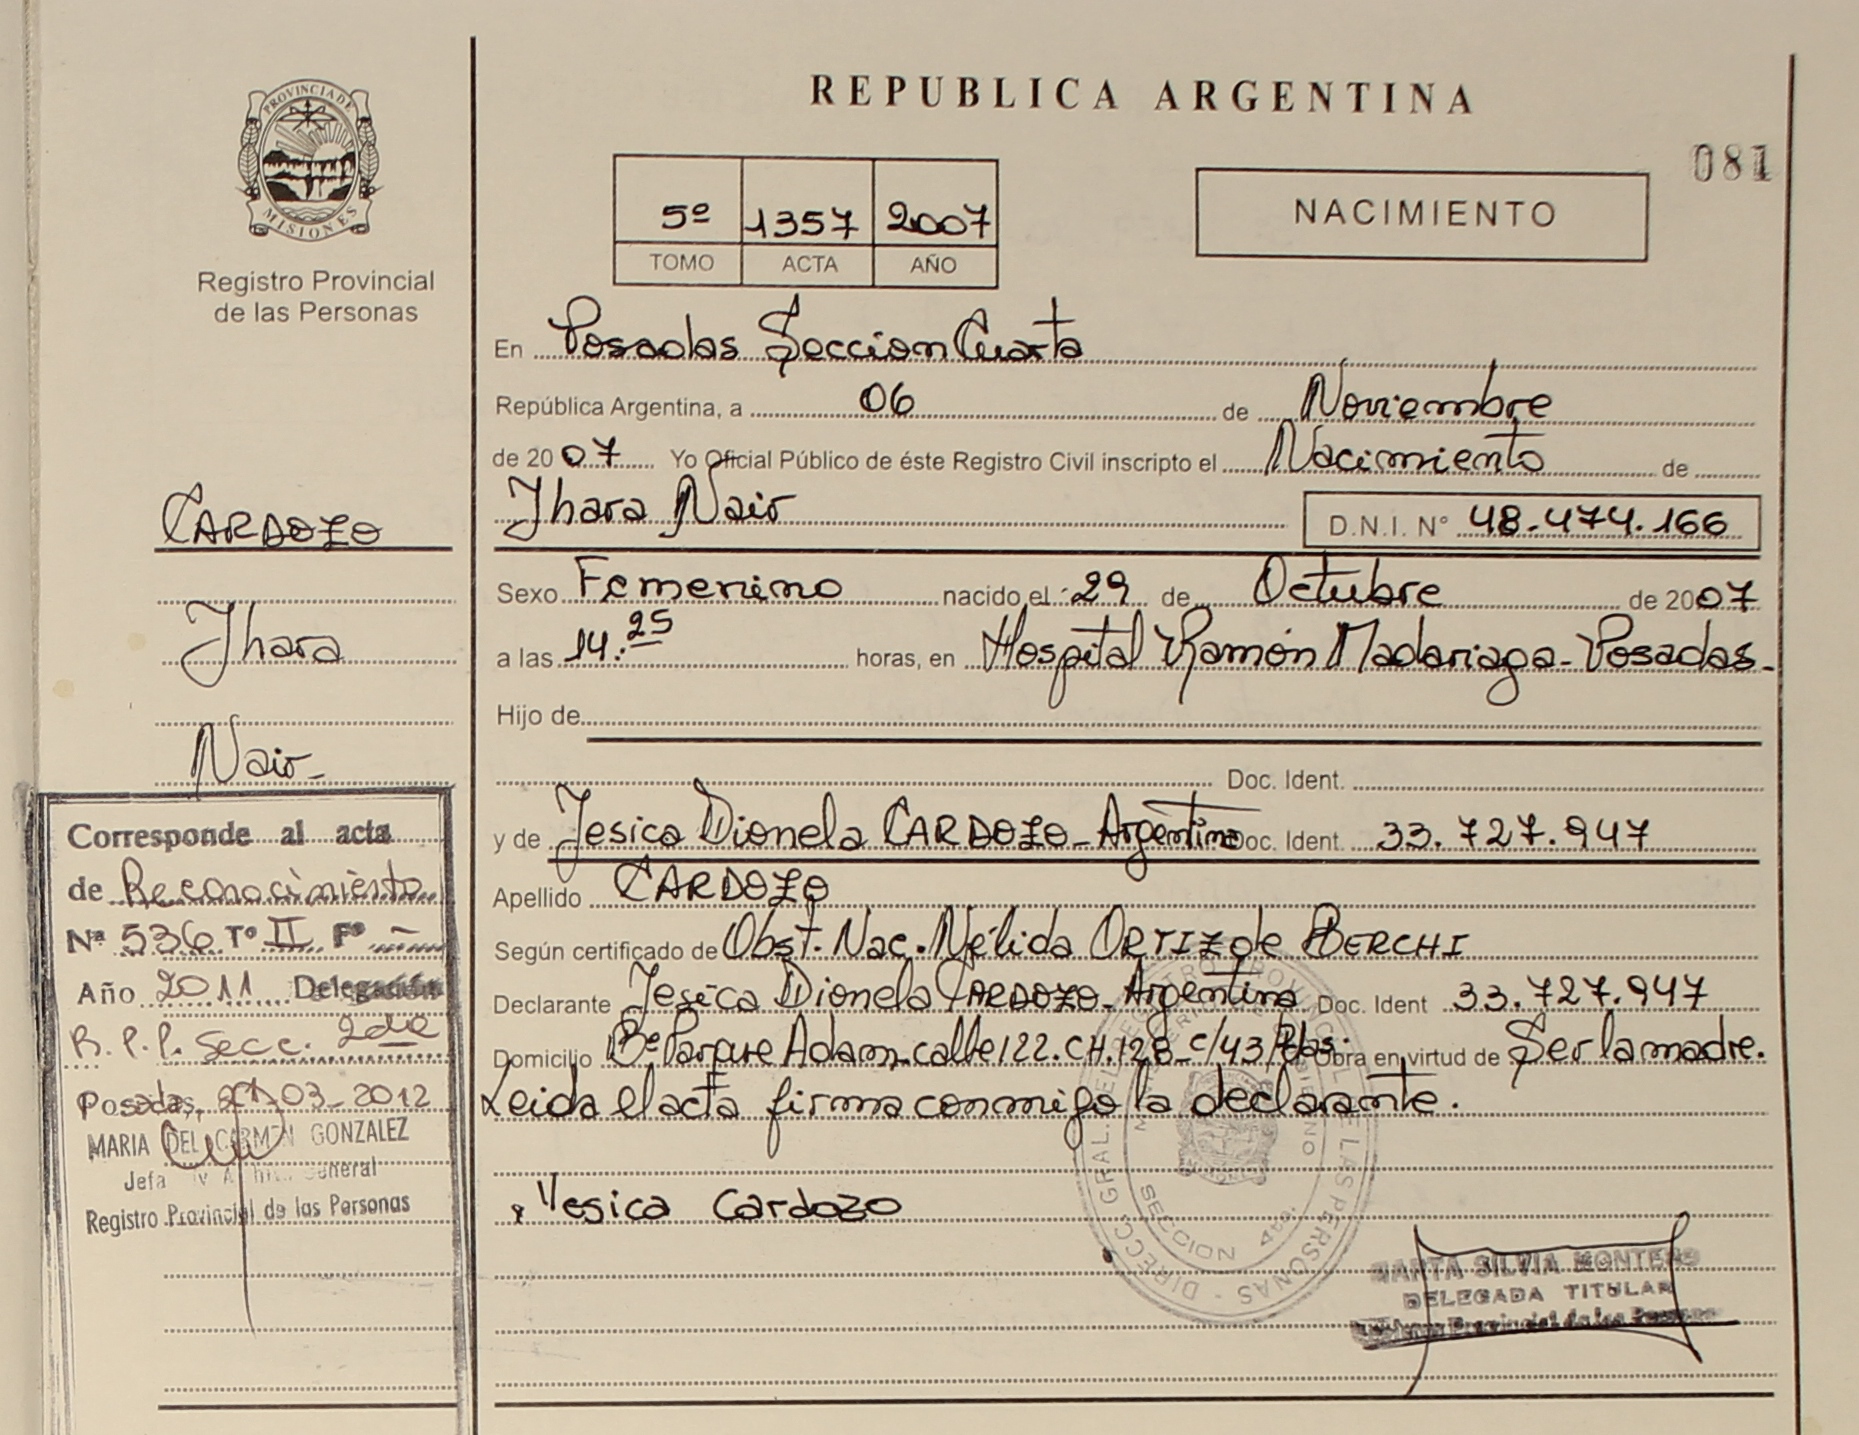 REPUBLICA ARGENTINA
081
PROVINCIA DE
MISIONES
Registro Provincial
de las Personas
5º 1357 2007
TOMO ACTA AÑO
NACIMIENTO
En Posadas Seccion Cuarta
República Argentina, a 06 de Noviembre
de 2007 Yo Oficial Público de éste Registro Civil inscripto el Nacimiento de
Jhara Nair D.N.I. Nº 48.474.166
Sexo Femenino nacido el 29 de Octubre de 2007
a las 14:25 horas, en Hospital Ramón Madariaga - Posadas -
Hijo de
Doc. Ident.
y de Jesica Dionela CARDOZO - Argentina Doc. Ident. 33.727.947
Apellido CARDOZO
Según certificado de Obst. Nac. Nélida ORTIZ de BERCHI
Declarante Jesica Dionela CARDOZO - Argentina Doc. Ident 33.727.947
Domicilio Bº Parque Adam - calle 122. CH. 128 - C/43 Pdas. Obra en virtud de Ser la madre.
Leida el acta firma conmigo la declarante.
Yesica Cardozo
DIRECC. GRAL. DEL REGISTRO PROVINCIAL DE LAS PERSONAS
SECCION 4ta.
MARTA SILVIA MONTERO
DELEGADA TITULAR
Provincial de las Personas
CARDOZO
Jhara
Nair -
Corresponde al acta
de Reconocimiento
Nº 536 Tº II Fº -
Año 2011 Delegación
R.P.P. Secc. 2da
Posadas, 03-2012
MARIA DEL CARMEN GONZALEZ
Jefa General
Registro Provincial de las Personas